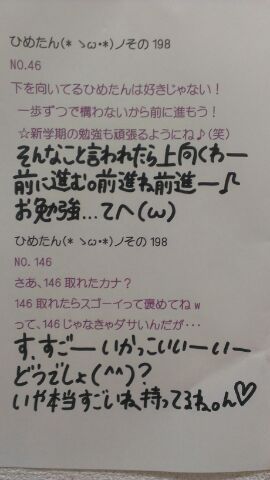 ひめたん(* ゝω·*)ノその 198
NO.46
下を向いてるひめたんは好きじゃない！
一歩ずつで構わないから前に進もう！
☆新学期の勉強も頑張るようにね♪(笑)
そんなこと言われたら上向くわー
前に進む。前進ね前進ー♪
お勉強…てへ(ω)
ひめたん(* ゝω·*)ノその 198
NO. 146
さあ、146 取れたカナ？
146 取れたらスゴーイって褒めてね w
って、146 じゃなきゃダサいんだが・・・
す、すごーいかっこいいーいー
どうでしょ(^^)?
いや本当すごいね、持ってるね。ん♡